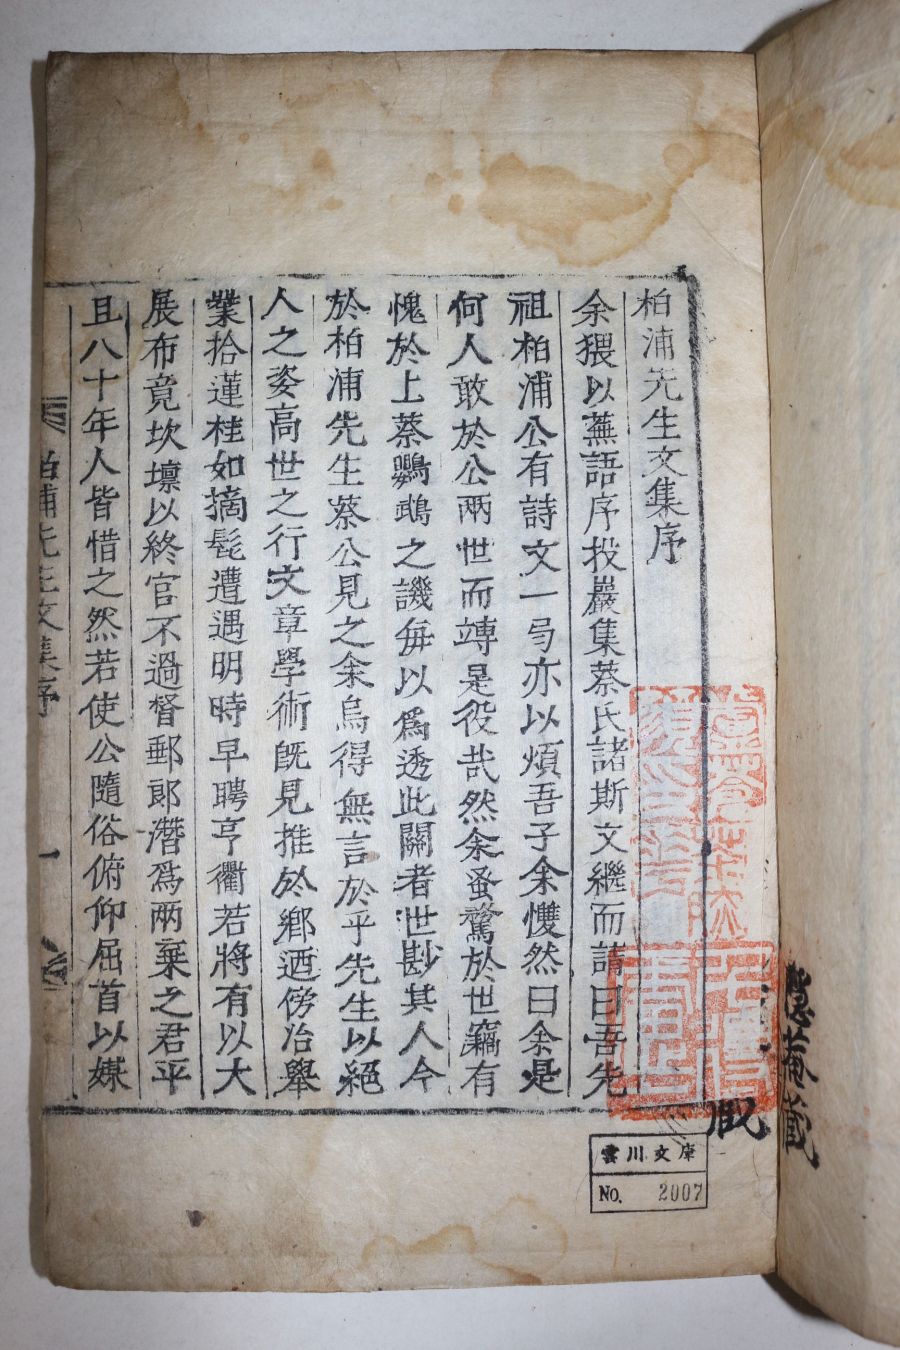 柏浦先生文集序
余猥以蕪語序投巖集蔡氏諸斯文繼而請曰吾先
祖柏浦公有詩文一局亦以煩吾子余戄然曰余是
何人敢於公兩世而竱是役哉然余蚤驚於世竊有
愧於上蔡鸚鵡之譏每以爲透此關者世尠其人今
於柏浦先生蔡公見之余烏得無言於乎先生以絕
人之姿高世之行文章學術旣見推於鄕迺傍治舉
業拾蓮桂如摘髭遭遇明時早聘亨衢若將有以大
展布竟坎壈以終官不過督郵郞潛爲兩棄之君平
且八十年人皆惜之然若使公隨俗俯仰屈首以媒
柏浦先生文集序
一
隱菴藏
雲川文庫
No. 2007